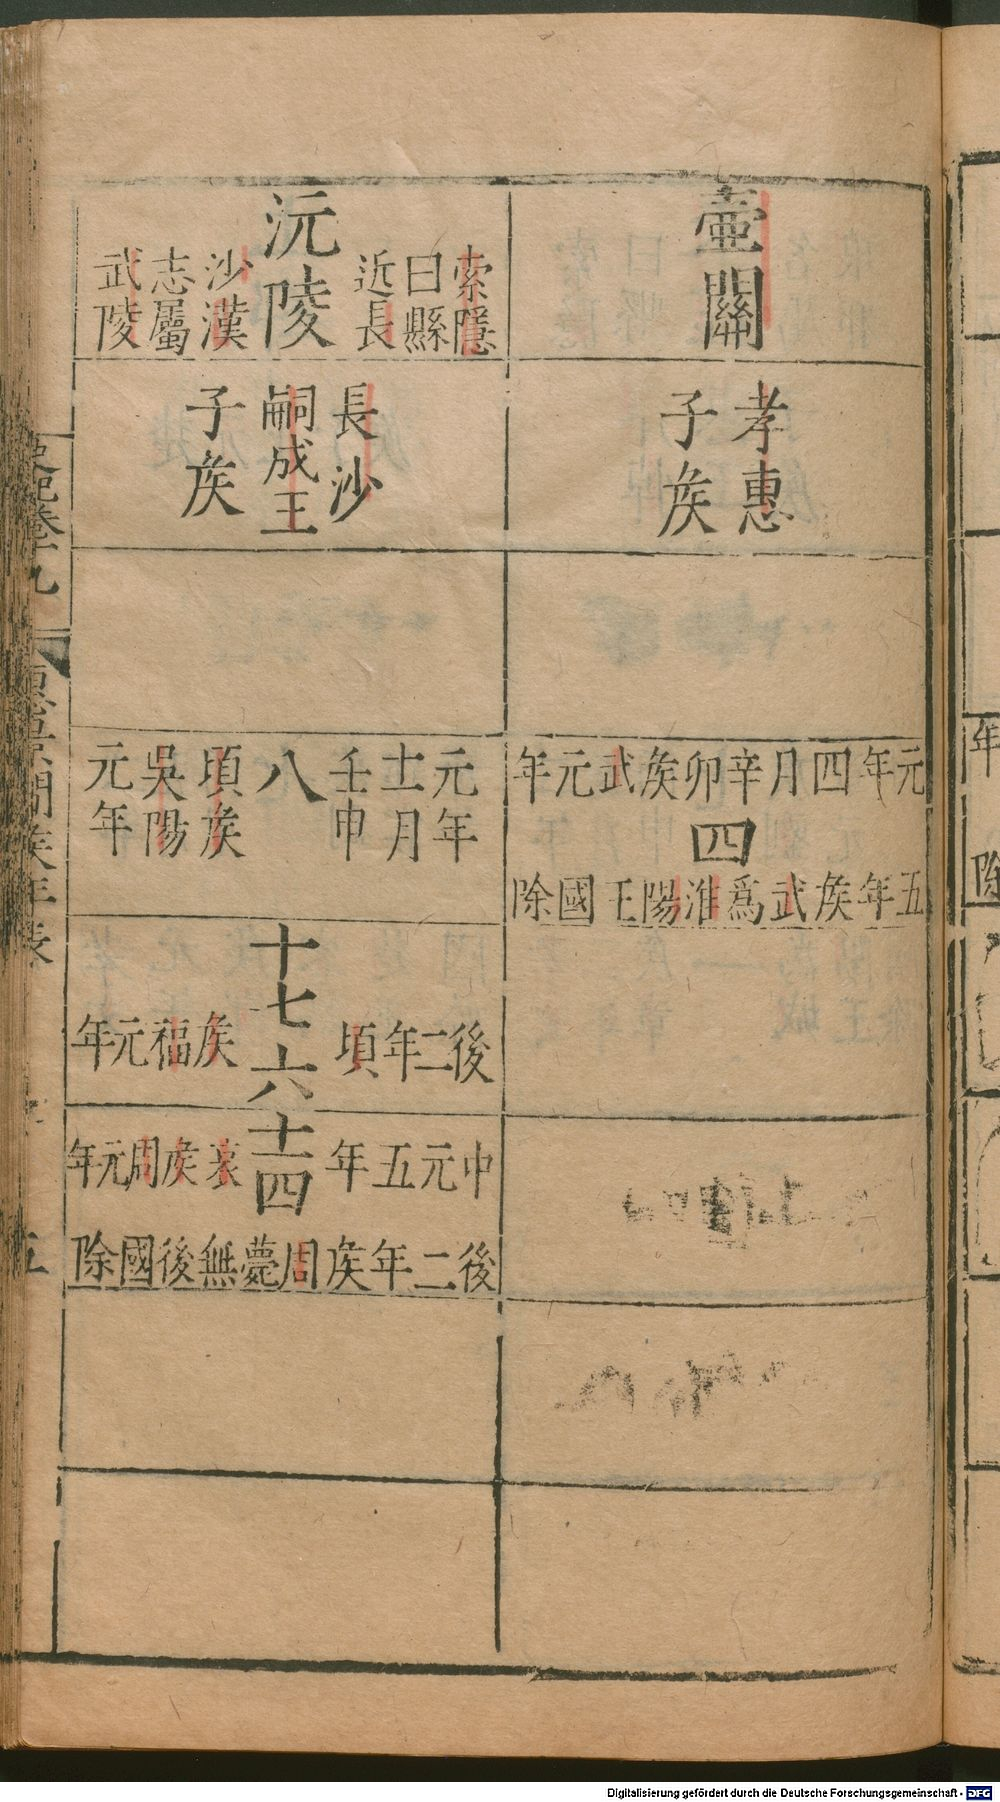 壷關
孝惠
子矦
元年四月辛卯矦武元年
四
五年矦武爲淮陽王國除
索隱
曰縣
近長
沅陵
沙漢
志屬
武陵
長沙
嗣成王
子矦
元年
十一月
壬申
八
頃矦
吳陽
元年
後二年頃
十七 六
矦福元年
中元五年
十一 四
哀矦周元年
後二年矦周薨無後國除
惠景間矦年表
五
Digitalisierung gefördert durch die Deutsche Forschungsgemeinschaft - DFG